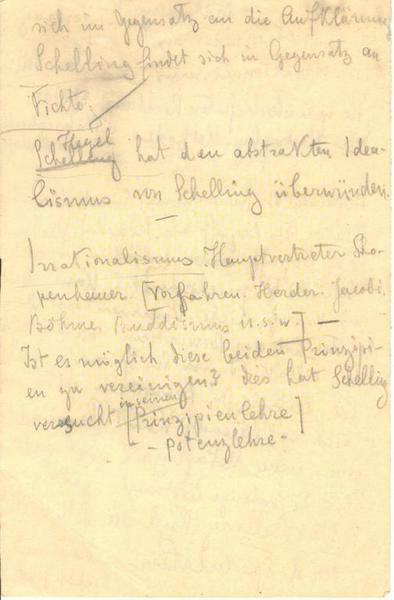 sich im Gegensatz an die Aufklärung
Schelling findet sich in Gegensatz an
Fichte.
Hegel
Schelling hat den abstrakten Idea-
lismus von Schelling überwunden.
Irrationalismus. Hauptvertreter Sho-
penheuer. [Vorfahren. Herder. Jacobi,
Böhme, Buddismus u.s.w.] —
Ist es möglich diese beiden Prinzipi-
en zu vereinigen? dies hat Schelling
in seinen
versucht [Prinzipienlehre]
- Potenzlehre -